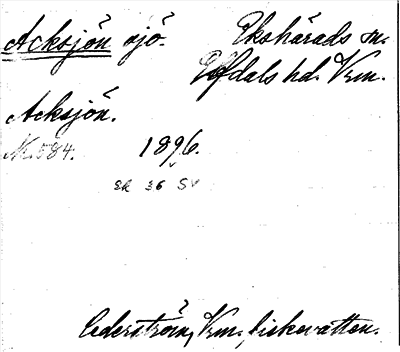 Acksjön sjö. Ekshärads sn.
Elfdals hd. Vrm.
Acksjön.
N:o 584. 1896.
ER 36 SV
Cederström, Vrm. fiskevatten.